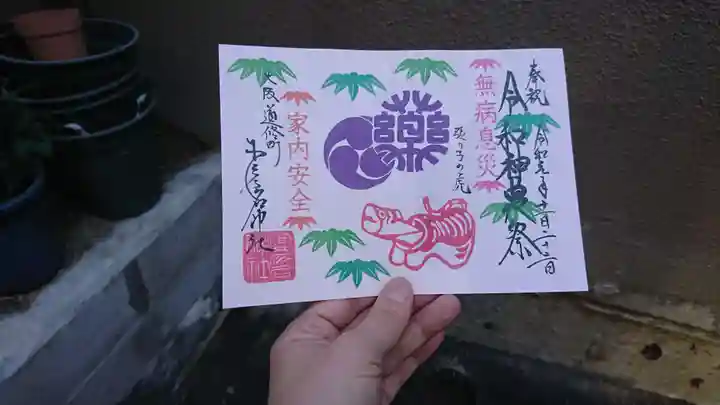 奉祝
令和神農祭
令和元年十一月二十二日
無病息災
張り子の虎
薬
家内安全
大阪道修町
少彦名神社